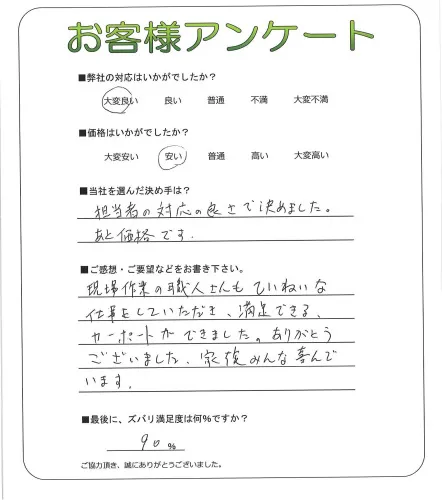 お客様アンケート
■弊社の対応はいかがでしたか？
大変良い 良い 普通 不満 大変不満
■価格はいかがでしたか？
大変安い 安い 普通 高い 大変高い
■当社を選んだ決め手は？
担当者の対応の良さで決めました。
あと価格です.
■ご感想・ご要望などをお書き下さい。
現場作業の職人さんもていねいな
仕事をしていただき、満足できる、
カーポートができました。ありがとう
ございました、家族みんな喜んで
います.
■最後に、ズバリ満足度は何%ですか？
90 %
ご協力頂き、誠にありがとうございました。